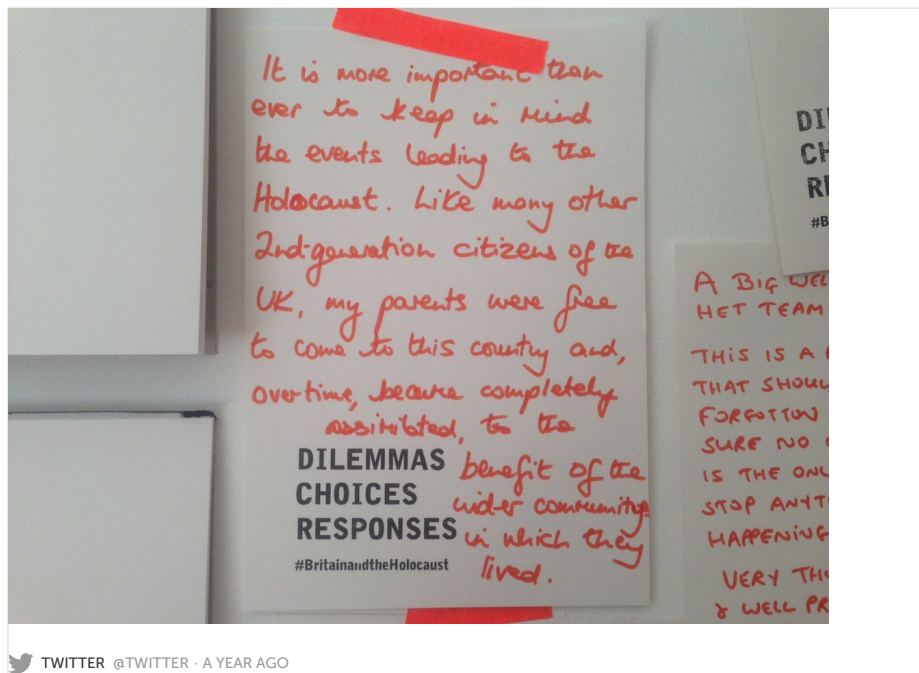 It is more important than
ever to keep in mind
the events leading to the
Holocaust. Like many other
2nd-generation citizens of the
UK, my parents were free
to come to this country and,
overtime, became completely
assimilated, to the
benefit of the
wider community
in which they
lived.
DILEMMAS
CHOICES
RESPONSES
#BritainandtheHolocaust
DI
CH
R
#B
A BIG WEL
HET TEAM
THIS IS A
THAT SHOUL
FORGOTTON
SURE NO
IS THE ONL
STOP ANYT
HAPPENING
VERY THO
& WELL PR
TWITTER @TWITTER · A YEAR AGO